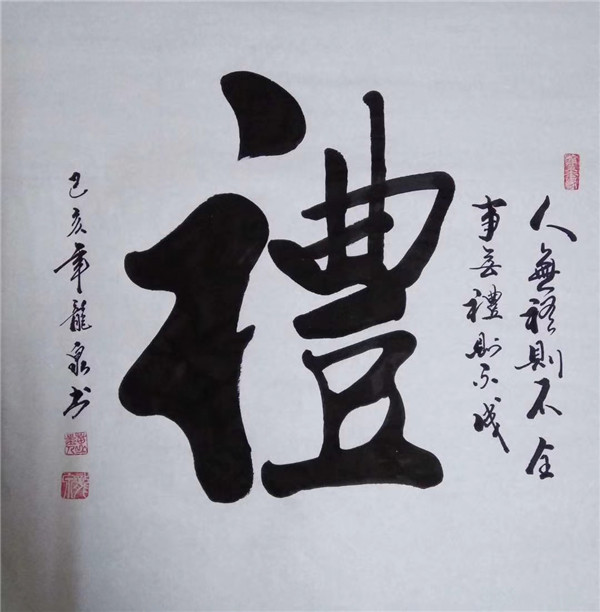 人無禮則不全
事無禮則不成
禮
己亥年龍泉书